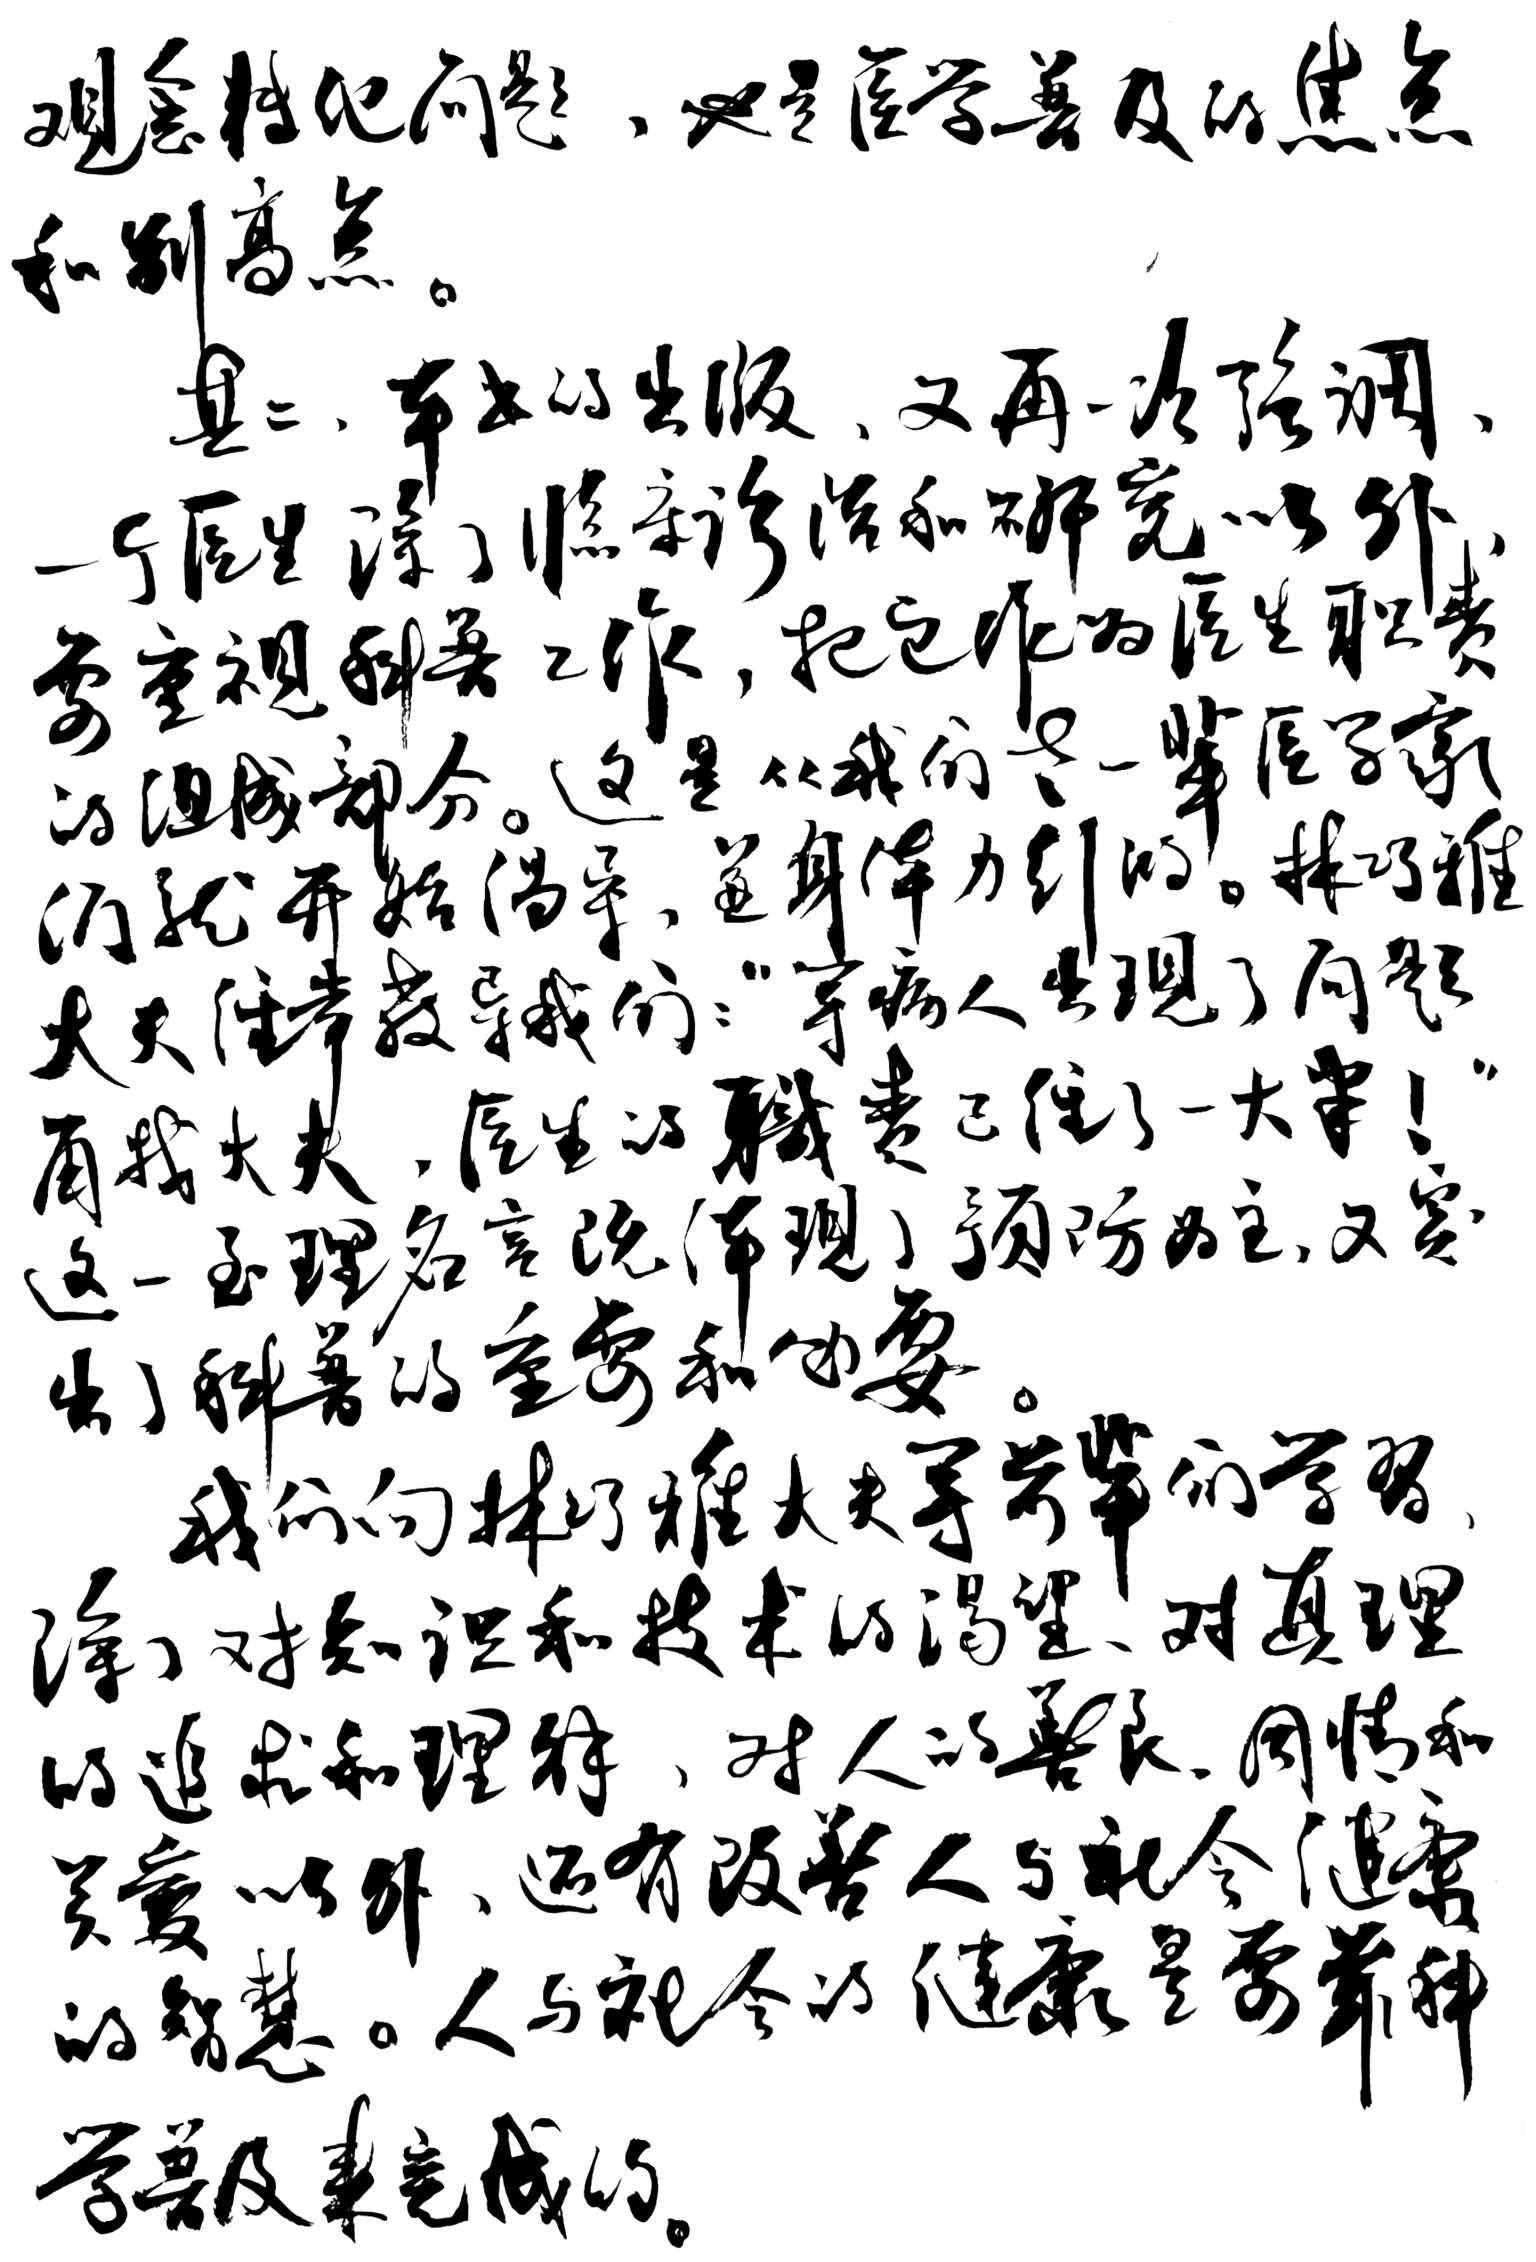 观念转化问题，也是医学普及的焦点
和制高点。
其二，本书的出版，又再一次强调，
一个医生除了临床诊治和研究以外，
要重视科普工作，把它作为医生职责
的组成部分。这是从我们老一辈医学家
们就开始倡导，并身体力行的。林巧稚
大夫经常教导我们：“等病人出现了问题
再找大夫，医生的職责已经了一大半！”
这一至理名言既体现了预防为主，又突
出了科普的重要和必要。
我们向林巧稚大夫等前辈们学习，
除了对知识和技术的渴望、对真理
的追求和理解，对人的善良、同情和
关爱以外，还有改善人与社会健康
的智慧。人与社会的健康是要靠科
学普及来完成的。